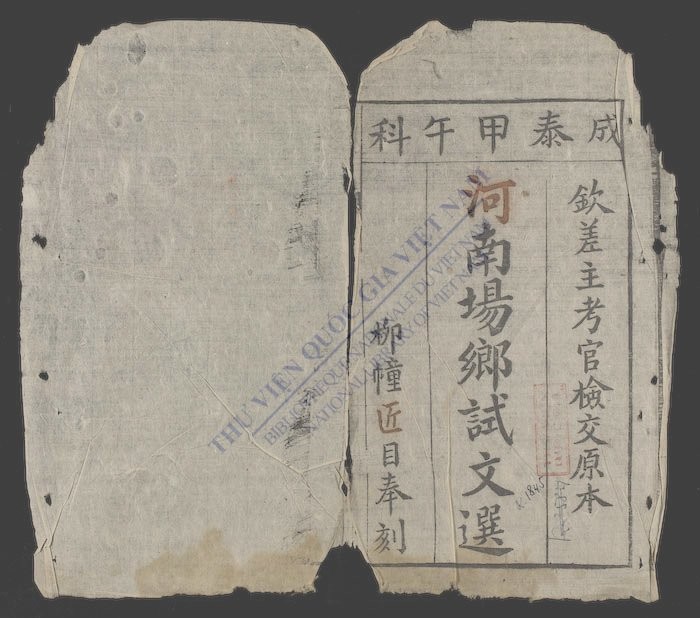 成泰甲午科
欽差主考官檢交原本
河南場鄉試文選
柳幢近目奉刻
THƯ VIỆN QUỐC GIA VIỆT NAM
BIBLIOTHÈQUE NATIONALE DU VIETNAM
NATIONAL LIBRARY OF VIETNAM
1845